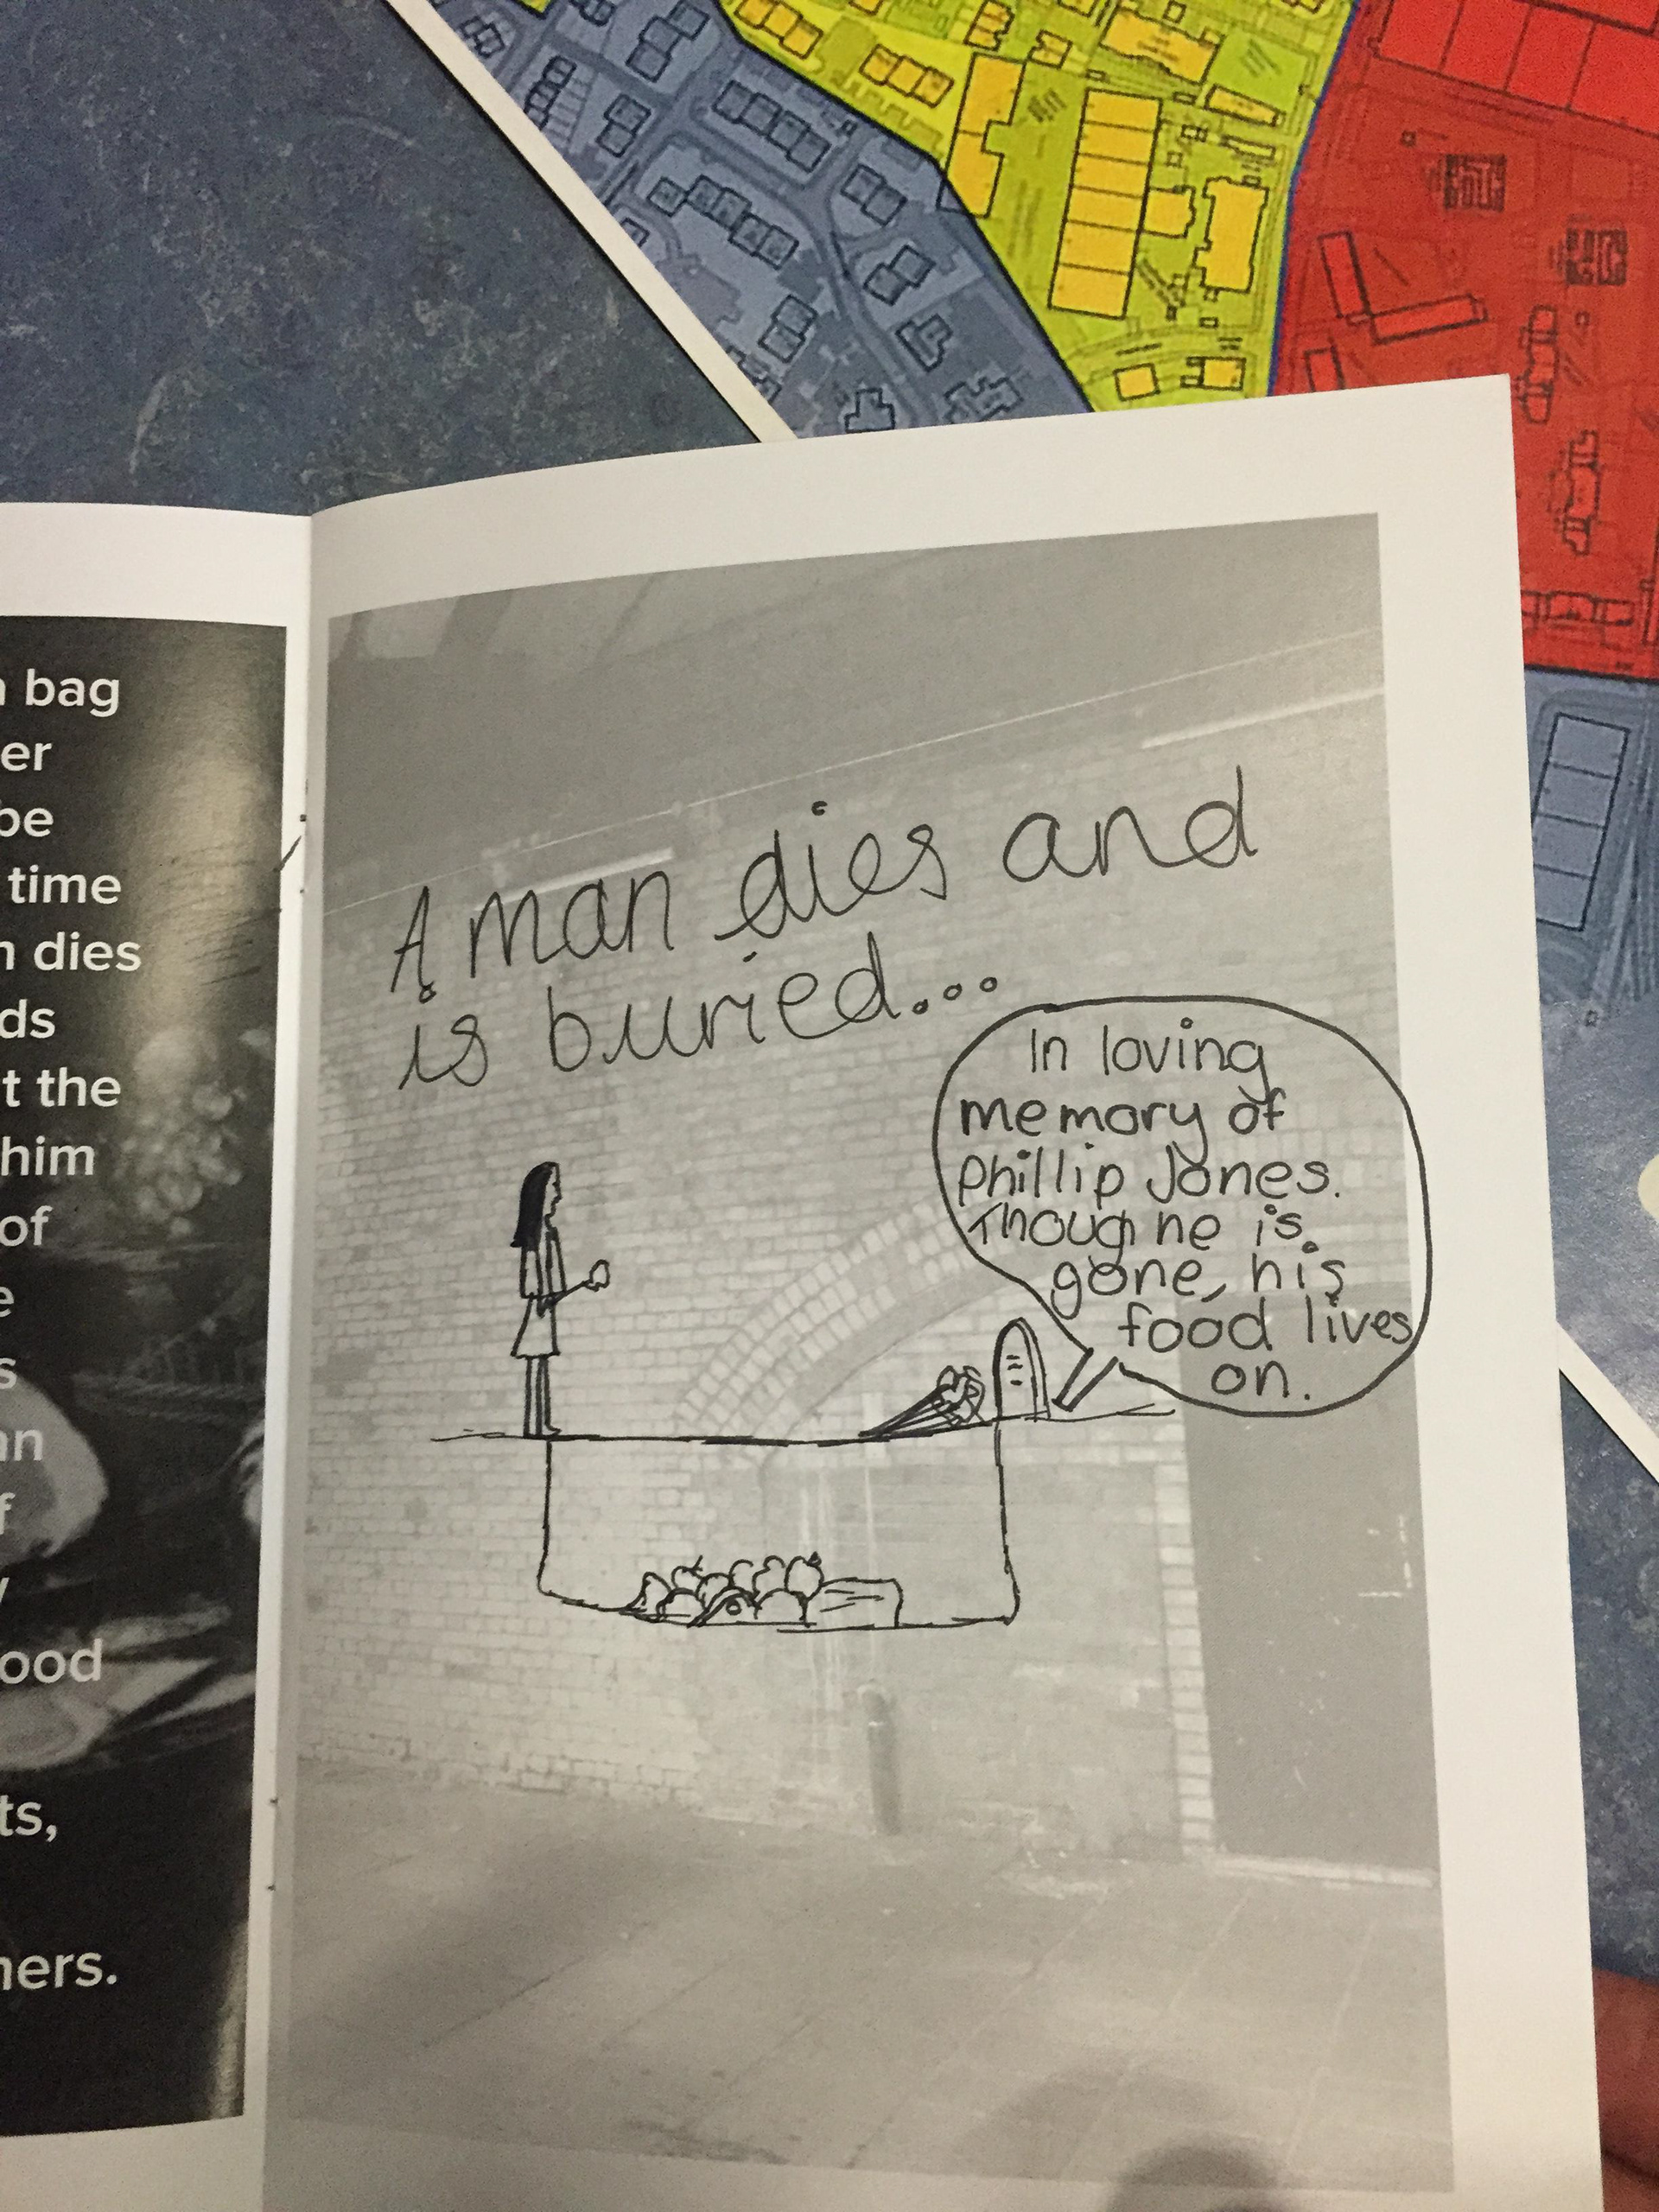 bag
er
be
time
dies
ds
t the
him
of
e
s
an
f
y
ood
ts,
ners.
A man dies and
is buried...
In loving
memory of
Phillip Jones.
Though he is
gone, his
food lives
on.